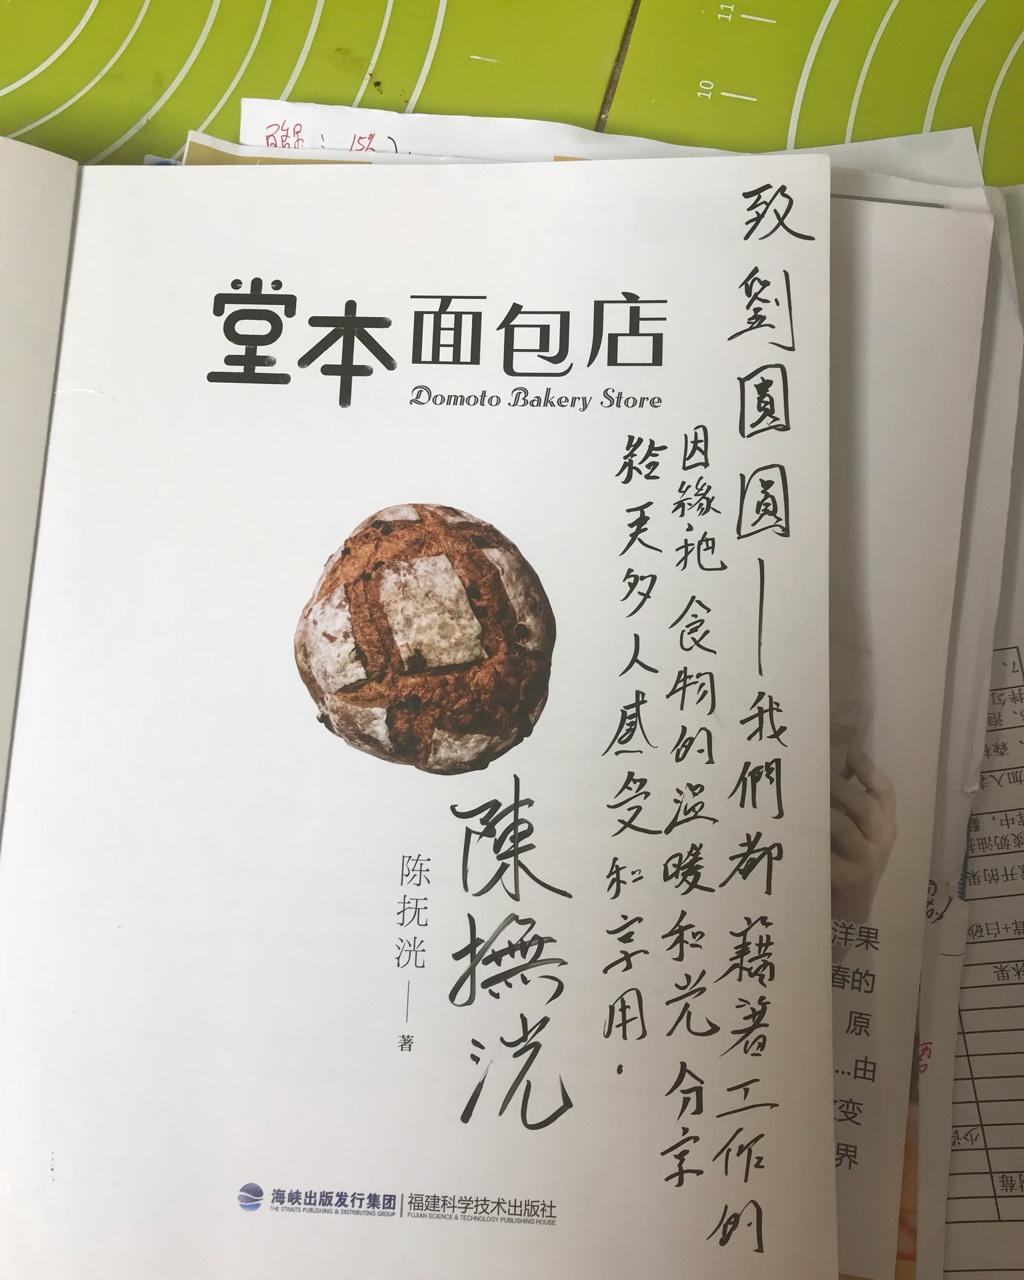 堂本面包店
Domoto Bakery Store
致劉圓圓——我們都藉著工作的
因緣,把食物的溫暖和光分享
給更多人感受和享用.
陳撫洸
陈抚洸——著
海峡出版发行集团
THE STRAITS PUBLISHING & DISTRIBUTING GROUP
福建科学技术出版社
FUJIAN SCIENCE & TECHNOLOGY PUBLISHING HOUSE
15%
11
10
洋果
春的
原
...由
变
界